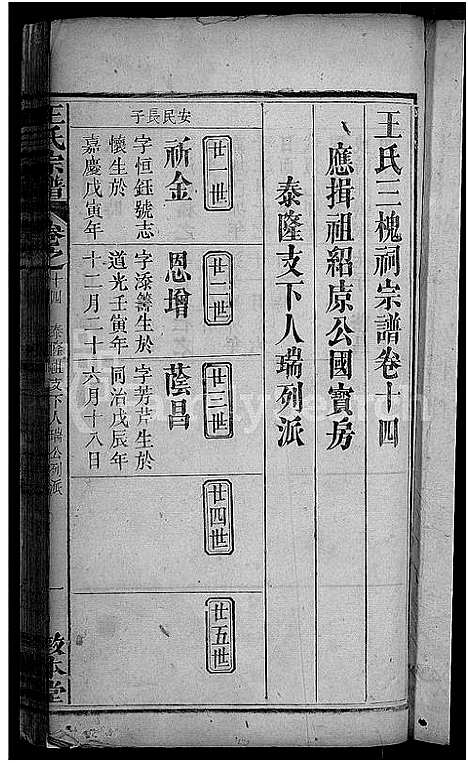 王氏三槐祠宗譜卷十四
應揖祖紹㡳公國寳房
泰隆支下人瑞列派
廿一世
廿二世
廿三世
廿四世
廿五世
安民長子
祈金
字恒鈺號志
懷生於
嘉慶戊寅年
恩增
字添籌生於
道光壬寅年
十二月二十
蔭昌
字芳芹生於
同治戊辰年
六月十八日
王氏宗譜
卷之十四
泰隆祖支下人瑞公列派
一
敦本堂